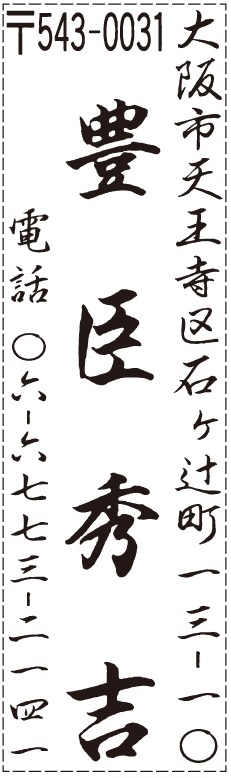 〒543-0031
大阪市天王寺区石ヶ辻町一三-一〇
豊臣秀吉
電話〇六-六七七三-二一四一